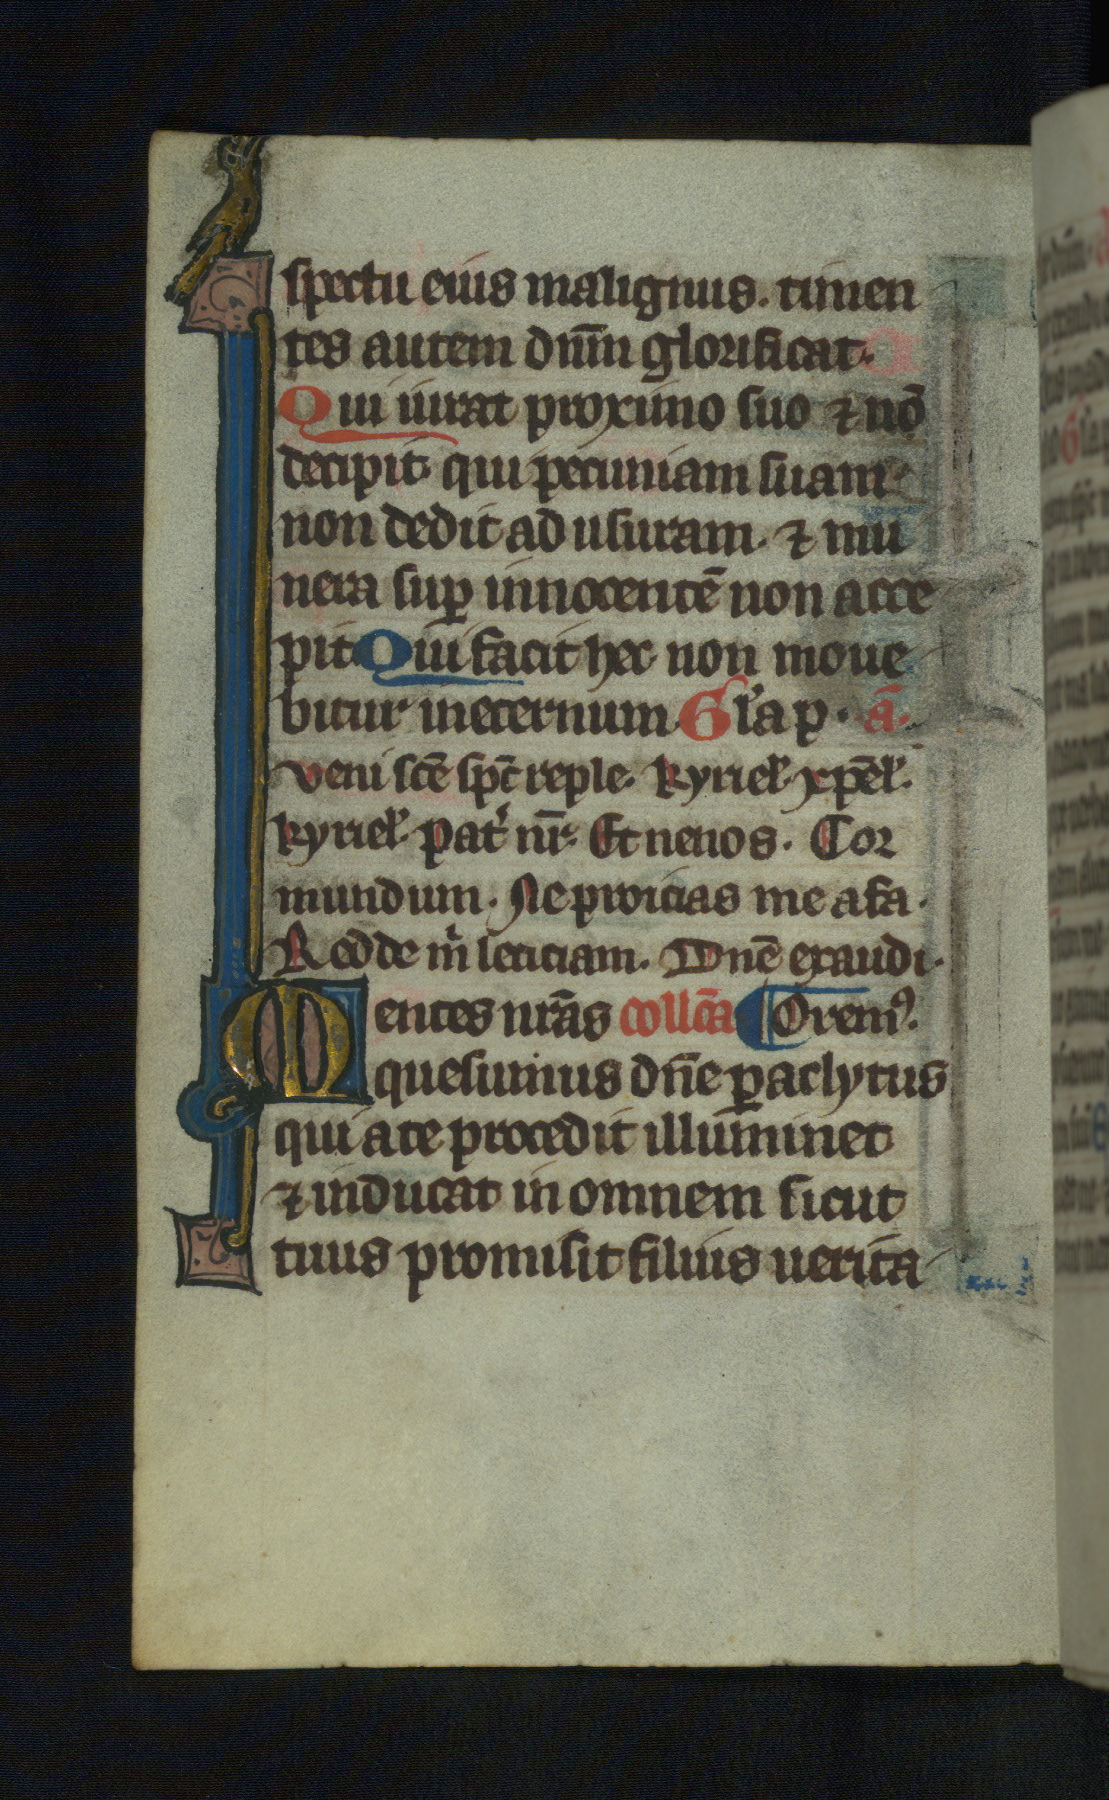 spectu eius malignus. timen
tes autem dnm̄ glorificat.
Qui iurat proximo suo ⁊ nō
decipit qui pecuniam suam
non dedit ad usuram. ⁊ mu
nera suꝑ innocentē non acce
pit Qui facit hec non moue
bitur in eternum Gl'a p. ā.
veni scē spc̄ reple. kyriel'. xp̄el'.
kyriel'. pat' nr̄. Et ne nos. Cor
mundum. Ne proicias me a fa.
Redde m' leticiam. Dnē exaudi.
Mentes nrās collc̄a Orem⁹.
quesumus dn̄e ꝑaclytus
qui a te procedit illuminet
⁊ inducat in omnem sicut
tuus promisit filius uerita